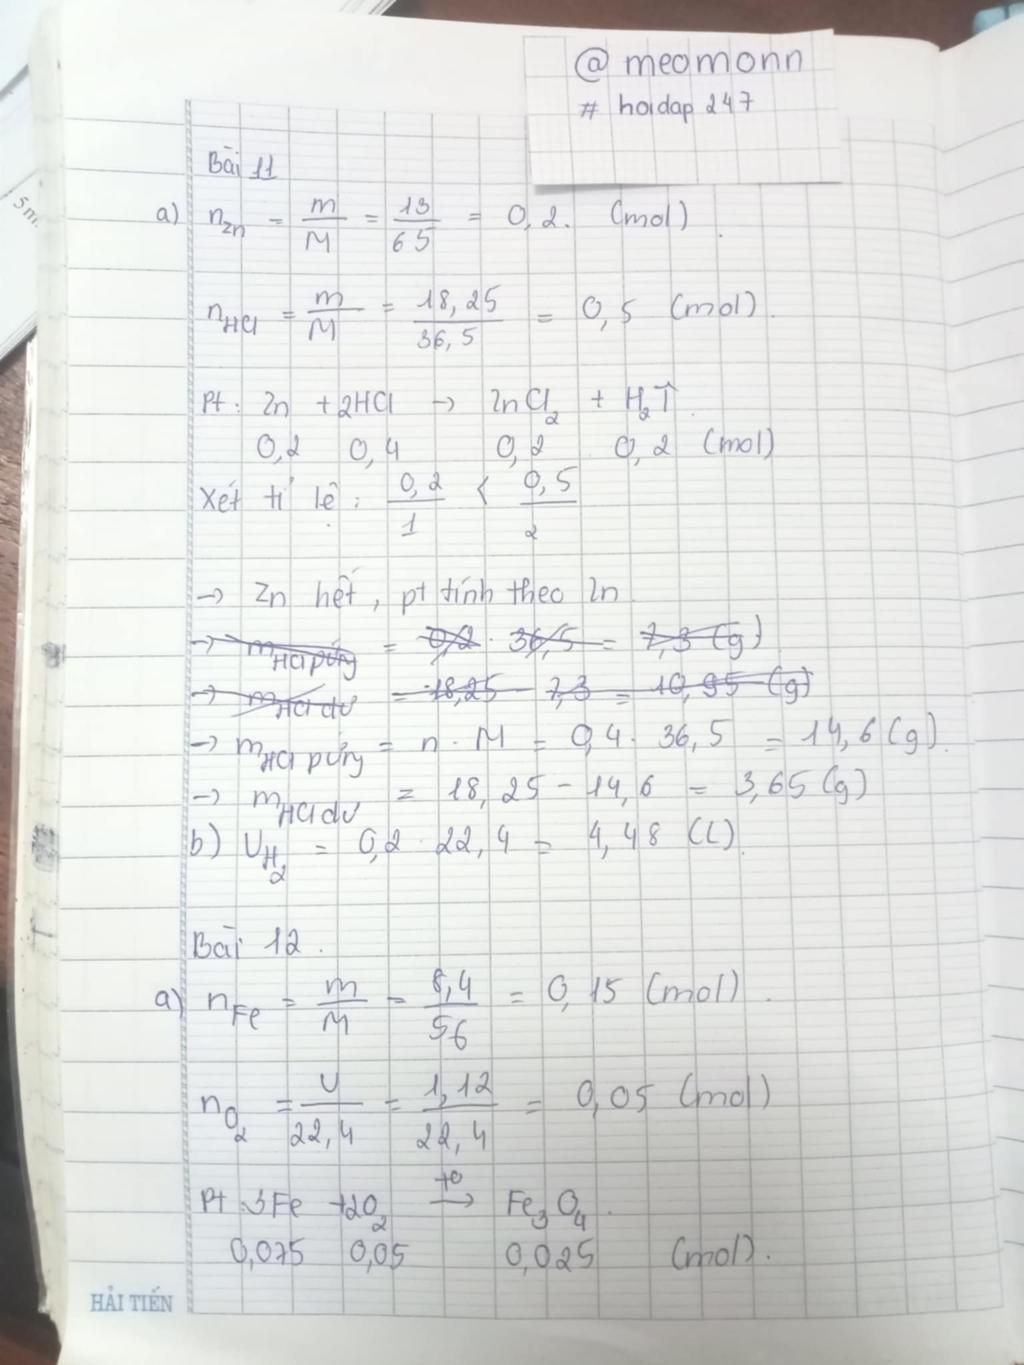 @ meomonn
# hoidap 247
5 m.
Bài 11
a) n_Zn = m/M = 13/65 = 0,2. (mol)
n_HCl = m/M = 18,25/36,5 = 0,5 (mol).
Pt: Zn + 2HCl → ZnCl₂ + H₂↑.
0,2 0,4 0,2 0,2 (mol)
Xét tỉ lệ: 0,2/1 < 0,5/2
→ Zn hết, pt tính theo Zn
→ m_HCl pứng = 0,2 . 36,5 = 7,3 (g)
→ m_HCl dư = 18,25 - 7,3 = 10,95 (g)
→ m_HCl pứng = n . M = 0,4 . 36,5 = 14,6 (g).
→ m_HCl dư = 18,25 - 14,6 = 3,65 (g)
b) V_H₂ = 0,2 . 22,4 = 4,48 (L).
Bài 12.
a) n_Fe = m/M = 8,4/56 = 0,15 (mol).
n_O₂ = V/22,4 = 1,12/22,4 = 0,05 (mol)
Pt: 3Fe + 2O₂ →(t°) Fe₃O₄.
0,075 0,05 0,025 (mol).
HẢI TIẾN